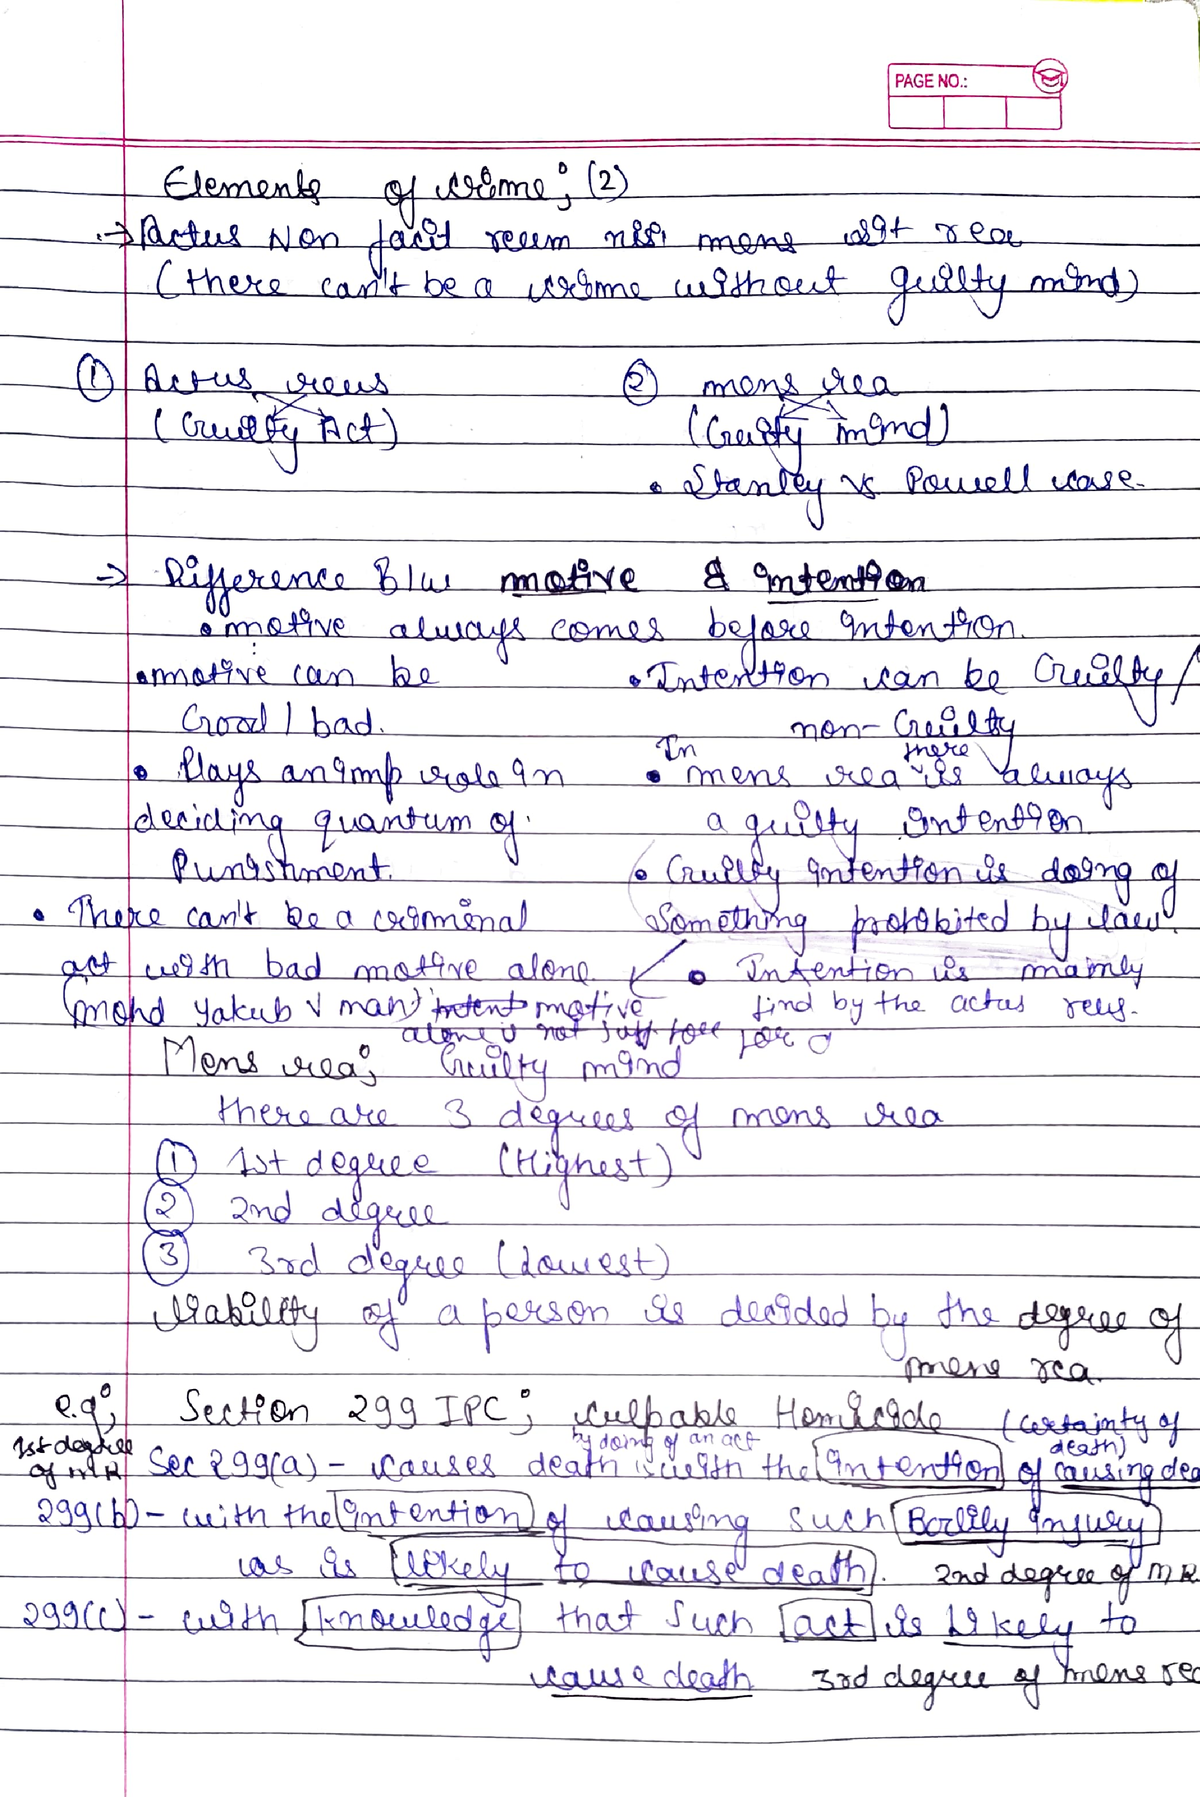 PAGE NO.:
Elements of crime; (2)
→ Actus Non facit reum nisi mens sit rea
(there can't be a crime without guilty mind)
① Actus reus ② mens rea
(Guilty Act) (Guilty mind)
• Stanley vs Powell case.
→ Difference B/w motive & intention
• motive always comes before intention.
• motive can be • Intention can be Guilty/
Good / bad. non-Guilty
• Plays an imp role in • In mens rea there is always
deciding quantum of a guilty intention
Punishment. • Guilty intention is doing of
• There can't be a criminal something prohibited by law.
act with bad motive alone. • Intention is mainly
(mohd yakub v mah) motive find by the actus reus.
alone is not suff
Mens rea; Guilty mind
there are 3 degrees of mens rea
① 1st degree (Highest)
② 2nd degree
③ 3rd degree (Lowest)
Liability of a person is decided by the degree of
mens rea.
e.g; Section 299 IPC; culpable Homicide (certainty of death)
1st degree of MR Sec 299(a) - causes death by doing of an act with the intention of causing dea
299(b) - with the intention of causing such Bodily injury
as is likely to cause death. 2nd degree of MR
299(c) - with knowledge that such act is likely to
cause death 3rd degree of mens rea